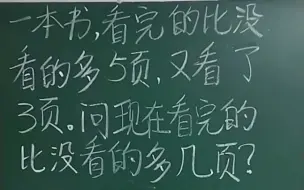 一本书,看完的比没
看的多5页,又看了
3页。问现在看完的
比没看的多几页?